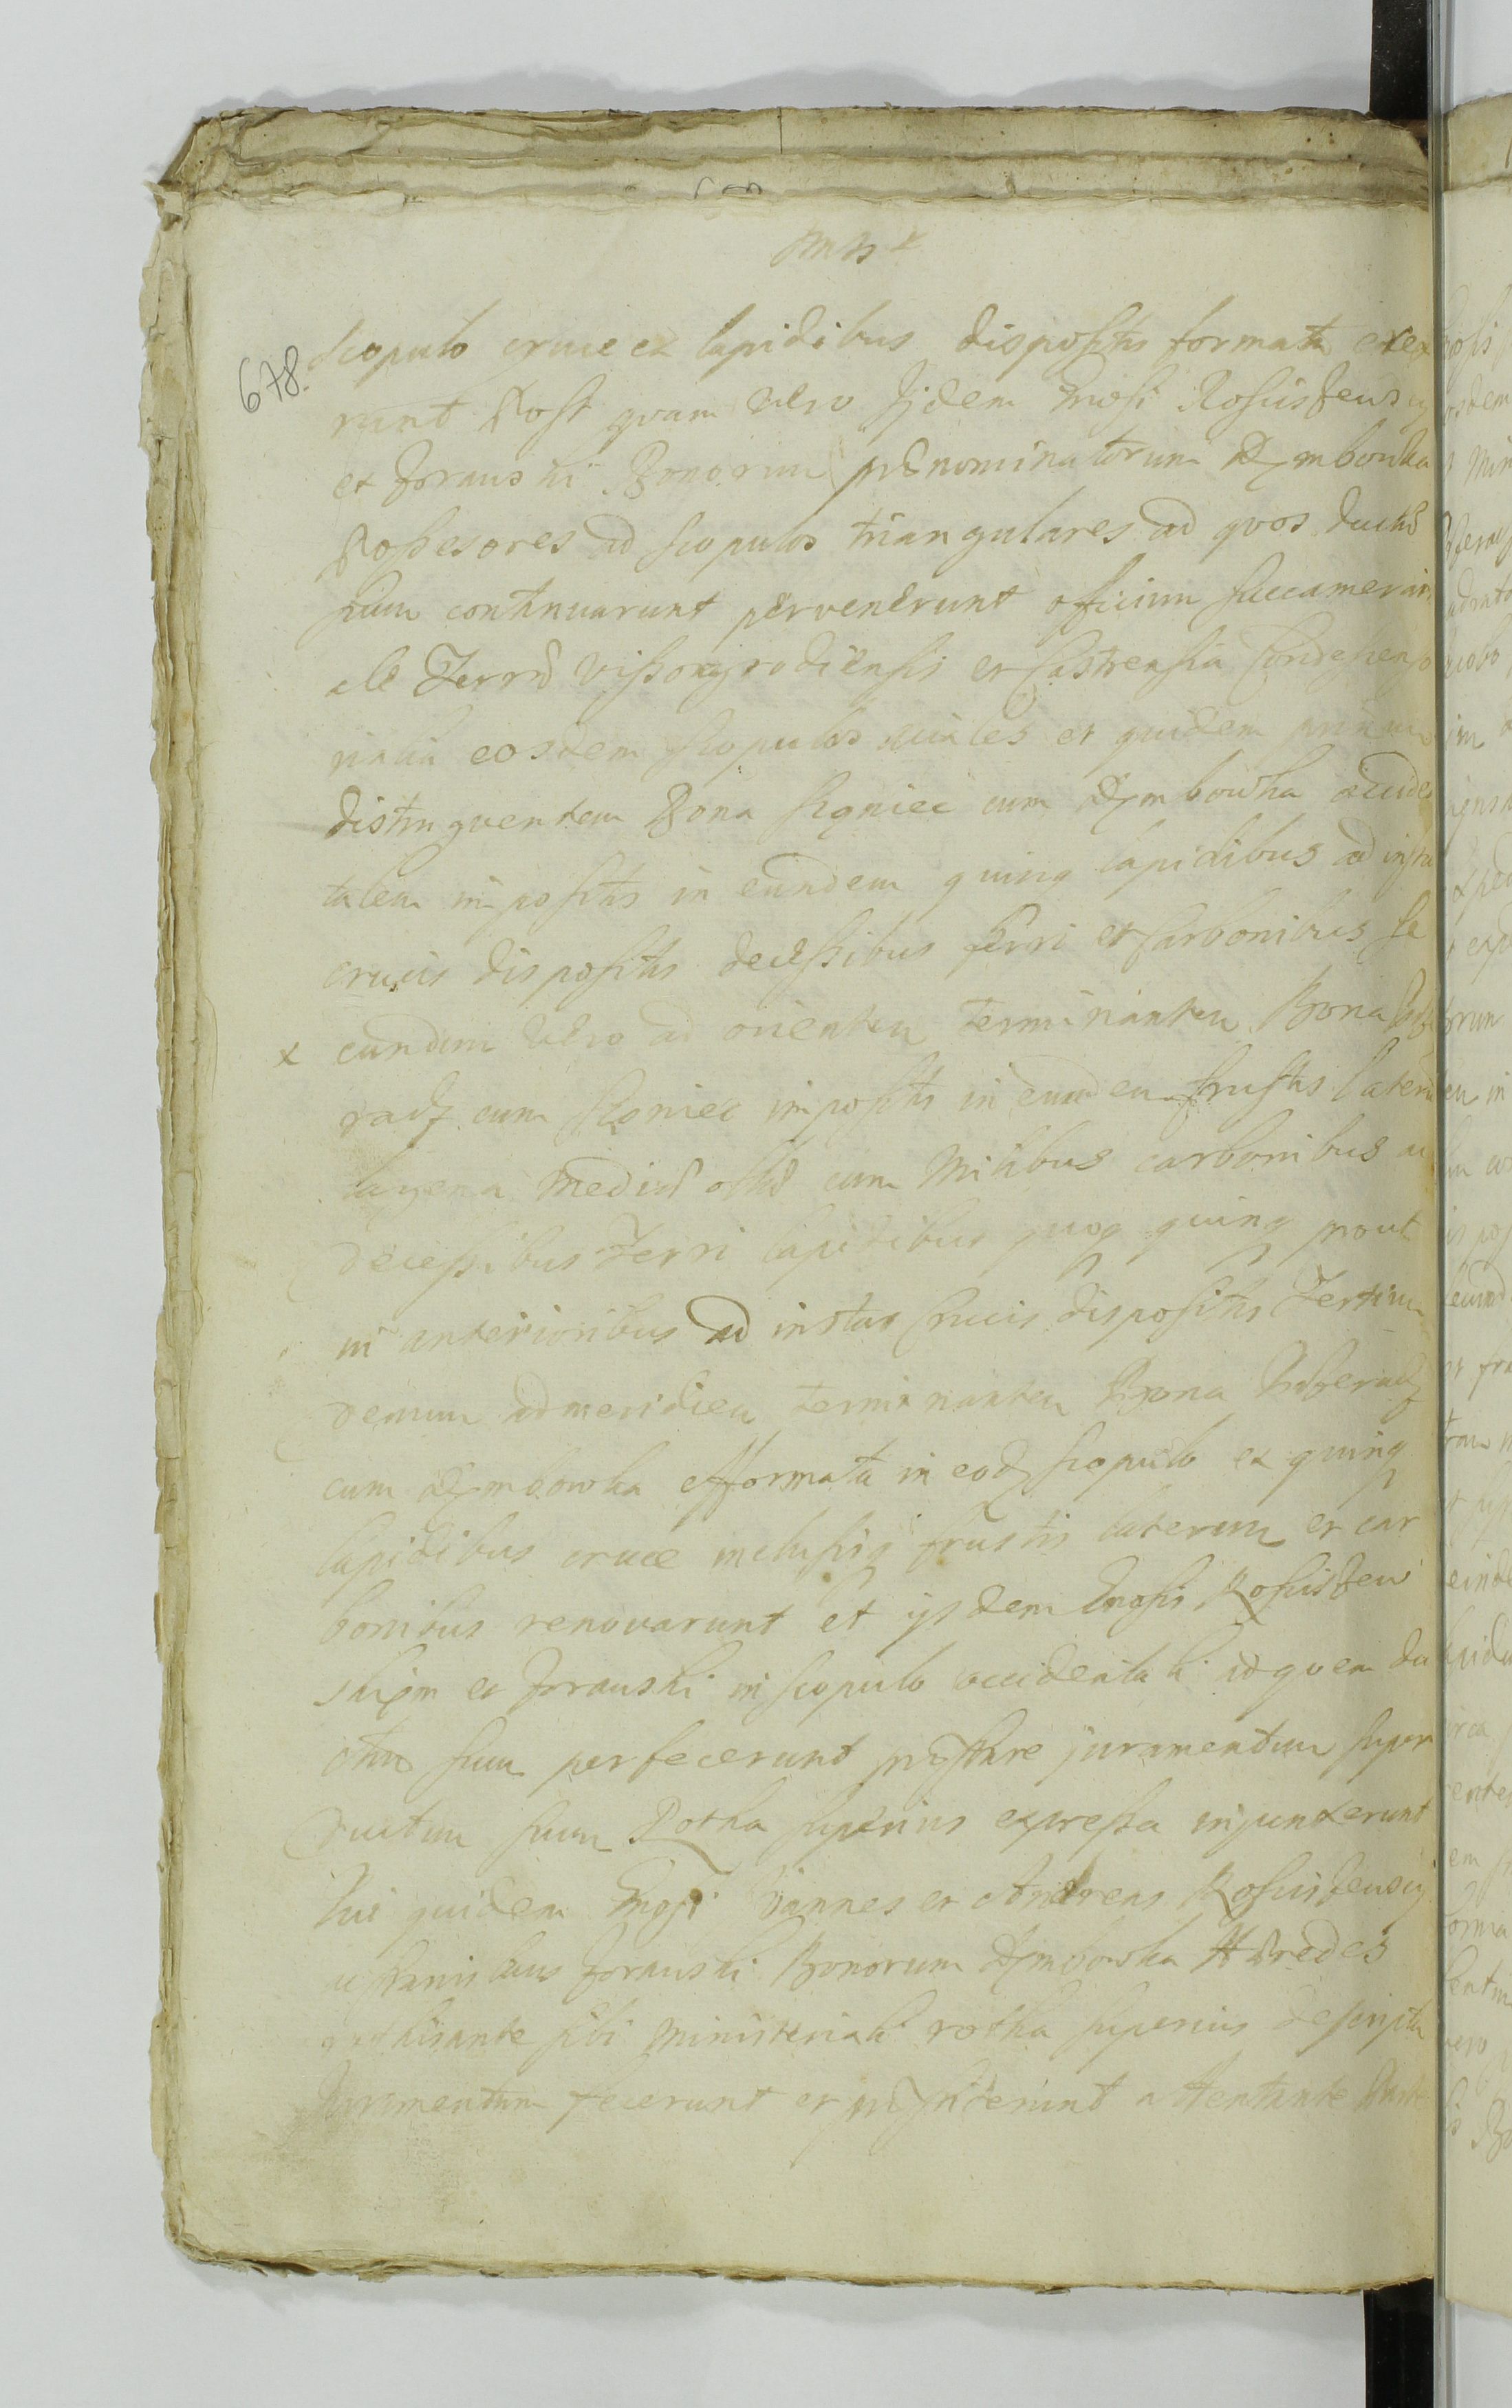 678.
scopulo cruce ex lapidibus dispositis formata erexe
runt Post quam vero Iidem Gnosi Rosciszewscy
et Jorauski Bonorum prænominatorum Dzmbowka
Possesores ad scopulos triangulares ad quos ductu
suum continuarunt pervenerunt officium succamerari
ale Terræ Vissogrodiensis et Castrensia Condescenso
rialia eosdem scopulos aciales et quidem primum
distinguentem Bona Kgniec cum Dzmbowka occiden
talem impositis in eundem quinq lapidibus ad insta
crucis dispositis decessibus ferri et carbonibus se
x cundum vero ad orientem terminantem Bona
radz cum Kgniec impositis in eundem frustis laterum
lagena mediæ ollæ cum milibus carbonibus ac
decessibus ferri lapidibus quoq quinq prout
in anterioribus ad instar Crucis dispositis Tertium
demum ad meridiem terminantem Bona
cum Dzmbowka efformata in eodz scopulo ex quinq
lapidibus cruce inclusisq frustis laterum et car
bonibus renovarunt et ijsdem Gnosis Rosciszew
skim et Jorauski in scopulo occidentali ad quem du
ctum suum perfecerunt præstare juramentum super
ductum suum Rotha superius expressa injunxerunt
Qui quidem Gnosi Joannes et Andreas Rosciszewscy
ac Stanislaus Jorauski Bonorum Dzmbowka Hæredes
sibi ministeriali rotha superius descripta
Juramentum fecerunt et præstiterunt attentante Parte